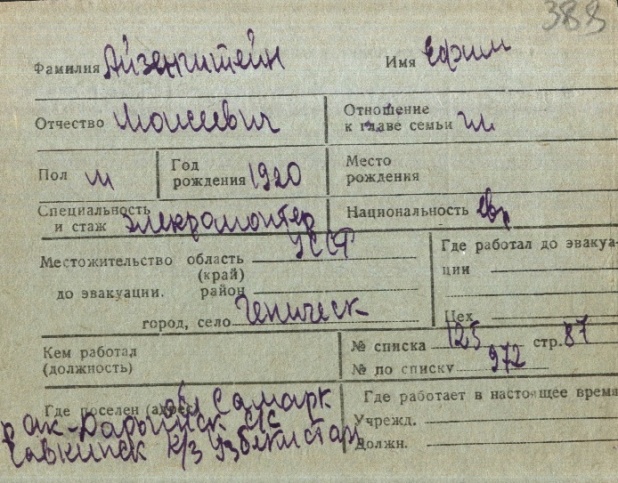 388
Фамилия Айзенштейн Имя Ефим
Отчество Моисеевич Отношение к главе семьи чл
Пол м Год рождения 1920 Место рождения
Специальность и стаж электромонтер Национальность евр
Местожительство область УССР Где работал до эвакуа-
(край) ции
до эвакуации. район
город, село Геническ Цех
Кем работал № списка 125 стр. 87
(должность) № по списку 972
Где поселен (адрес) обл Самарк Где работает в настоящее время
р Ак-Дарьинск с/с Учрежд.
к/з Узбекистан Должн.